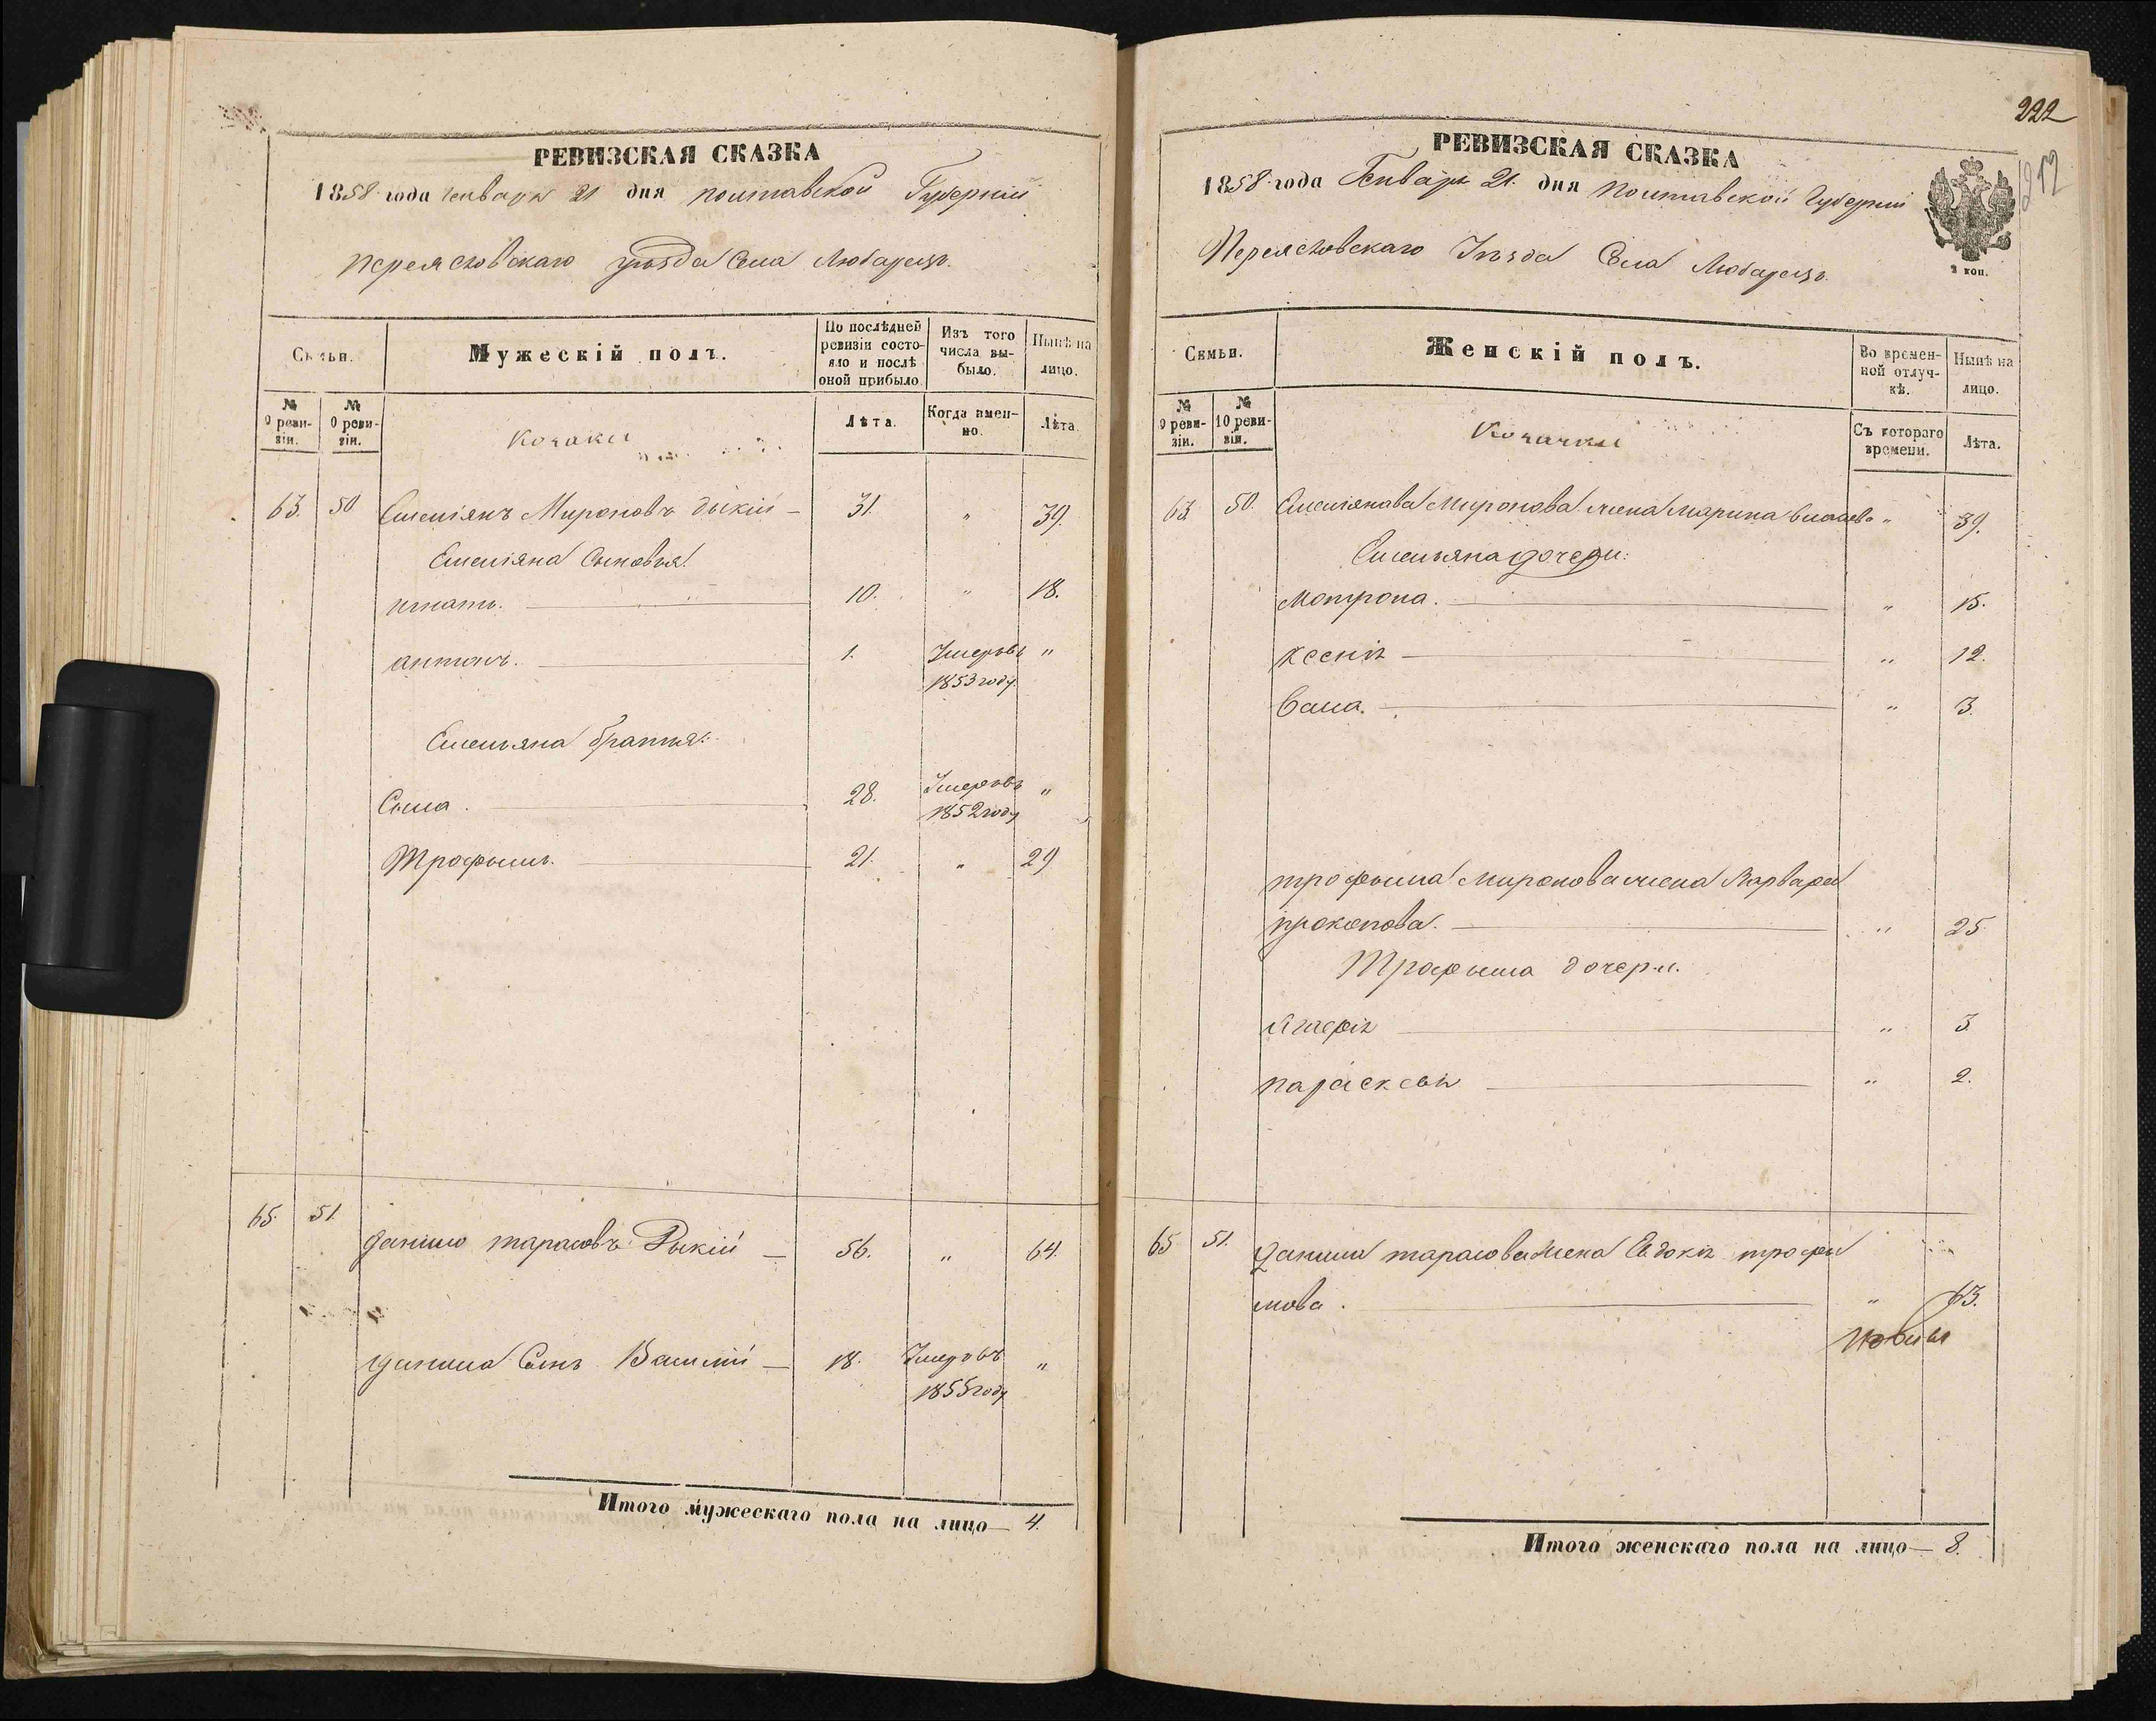 РЕВИЗСКАЯ СКАЗКА
1858 года Генваря 21 дня Полтавской Губернии
Переясловскаго уѣзда Села Любарецъ.
Семьи.
Мужескій полъ.
По послѣдней ревизіи состояло и послѣ оной прибыло.
Изъ того числа выбыло.
Нынѣ на лицо.
№ 9 ревизіи.
№ 10 ревизіи.
Козаки
Лѣта.
Когда именно.
Лѣта.
63. 50 Емельянъ Мироновъ дикій — 31. " 39.
Емельяна Сыновья:
игнатъ. 10. " 18.
антонъ. 1. Умеръ въ "
1853 году.
Емельяна братья:
28. Умеръ въ "
1852 году
Трофымъ. 21. " 29
65. 51. данило тарасовъ Дикій — 56. " 64.
данила Сынъ Василій — 18. Умеръ въ "
1855 году
Итого мужескаго пола на лицо — 4.
222
212
РЕВИЗСКАЯ СКАЗКА
1858 года Генваря 21. дня Полтавской Губерніи
Переясловскаго Уѣзда Села Любарецъ.
2 коп.
Семьи.
Женскій полъ.
Во временной отлучкѣ.
Нынѣ на лицо.
№ 9 ревизіи.
№ 10 ревизіи.
Козачки
Съ котораго времени.
Лѣта.
63 50. Миронова жена Марина " 39.
Емельяна дочери:
Мотрона. " 15.
Ксенія " 12.
" 3.
трофыма Миронова жена Варвара
прокопова. " 25
Трофыма дочери.
" 3.
параскевія " 2.
65 51. данила тарасова жена Евдокія трофи
мова. " 63.
Итого женскаго пола на лицо — 8.